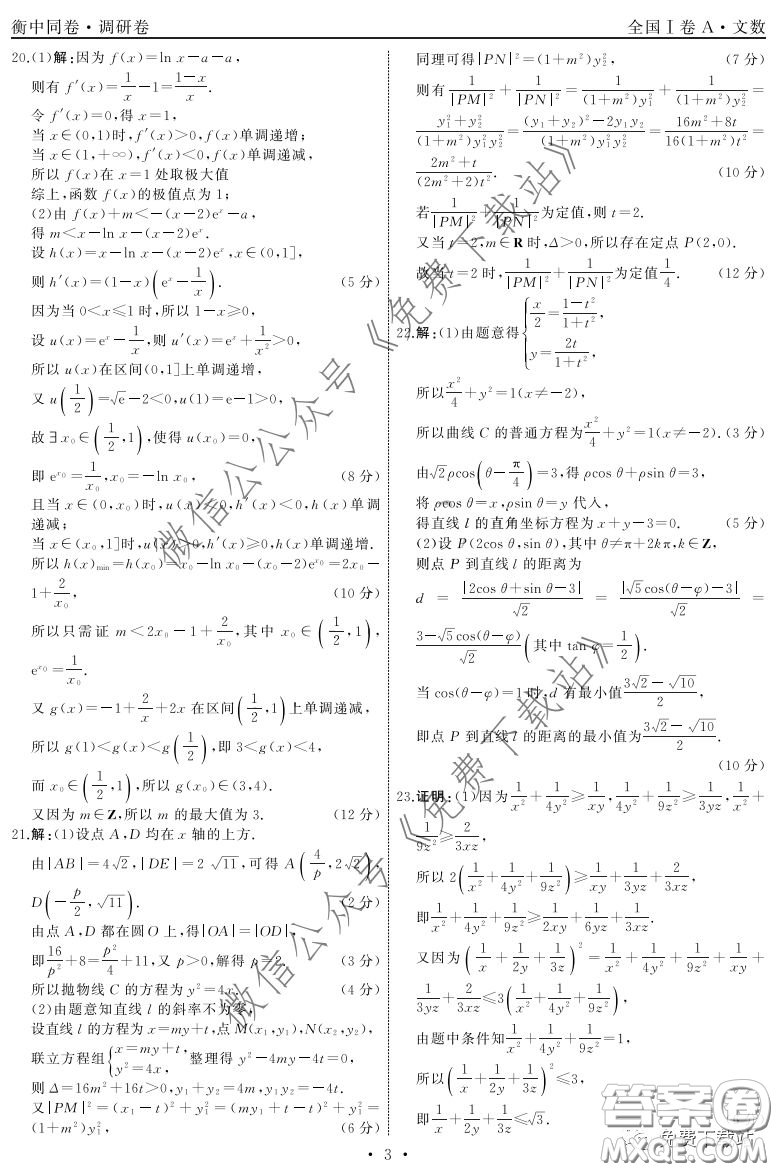 衡中同卷·调研卷
全国Ⅰ卷 A·文数
20.(1)解:因为 f(x)=ln x-a-a,
则有 f′(x)=1/x-1=(1-x)/x.
令 f′(x)=0,得 x=1,
当 x∈(0,1)时,f′(x)>0,f(x)单调递增;
当 x∈(1,+∞),f′(x)<0,f(x)单调递减,
所以 f(x)在 x=1 处取极大值
综上,函数 f(x)的极值点为 1;
(2)由 f(x)+m<-(x-2)e^x-a,
得 m<x-ln x-(x-2)e^x.
设 h(x)=x-ln x-(x-2)e^x,x∈(0,1],
则 h′(x)=(1-x)(e^x-1/x). (5 分)
因为当 0<x≤1 时,所以 1-x≥0,
设 u(x)=e^x-1/x,则 u′(x)=e^x+1/x²>0,
所以 u(x)在区间(0,1]上单调递增,
又 u(1/2)=√e-2<0,u(1)=e-1>0,
故∃x₀∈(1/2,1),使得 u(x₀)=0,
即 e^x₀=1/x₀,x₀=-ln x₀, (8 分)
且当 x∈(0,x₀)时,u(x)<0,h′(x)<0,h(x)单调
递减;
当 x∈(x₀,1]时,u(x)>0,h′(x)≥0,h(x)单调递增.
所以 h(x)min=h(x₀)=x₀-ln x₀-(x₀-2)e^x₀=2x₀-
1+2/x₀, (10 分)
所以只需证 m<2x₀-1+2/x₀,其中 x₀∈(1/2,1),
e^x₀=1/x₀.
又 g(x)=-1+2/x+2x 在区间(1/2,1)上单调递减,
所以 g(1)<g(x)<g(1/2),即 3<g(x)<4,
而 x₀∈(1/2,1),所以 g(x₀)∈(3,4).
又因为 m∈Z,所以 m 的最大值为 3. (12 分)
21.解:(1)设点 A,D 均在 x 轴的上方.
由|AB|=4√2,|DE|=2√11,可得 A(4/p,2√2),
D(-p/2,√11). (2 分)
由点 A,D 都在圆 O 上,得|OA|=|OD|,
即16/p²+8=p²/4+11,又 p>0,解得 p=2. (3 分)
所以抛物线 C 的方程为 y²=4x. (4 分)
(2)由题意知直线 l 的斜率不为零,
设直线 l 的方程为 x=my+t,点 M(x₁,y₁),N(x₂,y₂),
联立方程组{x=my+t, y²=4x, 整理得 y²-4my-4t=0,
则 Δ=16m²+16t>0,y₁+y₂=4m,y₁y₂=-4t.
又|PM|²=(x₁-t)²+y₁²=(my₁+t-t)²+y₁²=
(1+m²)y₁², (6 分)
同理可得|PN|²=(1+m²)y₂², (7 分)
则有 1/|PM|²+1/|PN|²=1/((1+m²)y₁²)+1/((1+m²)y₂²)=
(y₁²+y₂²)/((1+m²)y₁²y₂²)=((y₁+y₂)²-2y₁y₂)/((1+m²)y₁²y₂²)=(16m²+8t)/(16(1+m²)t²)=
(2m²+t)/((2m²+2)t²). (10 分)
若1/|PM|²+1/|PN|²为定值,则 t=2.
又当 t=2,m∈R 时,Δ>0,所以存在定点 P(2,0).
故当 t=2 时,1/|PM|²+1/|PN|²为定值1/4. (12 分)
22.解:(1)由题意得{x/2=(1-t²)/(1+t²), y=2t/(1+t²),
所以x²/4+y²=1(x≠-2),
所以曲线 C 的普通方程为x²/4+y²=1(x≠-2).(3 分)
由√2ρcos(θ-π/4)=3,得 ρcos θ+ρsin θ=3,
将 ρcos θ=x,ρsin θ=y 代入,
得直线 l 的直角坐标方程为 x+y-3=0. (5 分)
(2)设 P(2cos θ,sin θ),其中 θ≠π+2kπ,k∈Z,
则点 P 到直线 l 的距离为
d=|2cos θ+sin θ-3|/√2=|√5cos(θ-φ)-3|/√2=
(3-√5cos(θ-φ))/√2(其中 tan φ=1/2).
当 cos(θ-φ)=1 时,d 有最小值(3√2-√10)/2,
即点 P 到直线 l 的距离的最小值为(3√2-√10)/2.
(10 分)
23.证明:(1)因为1/x²+1/4y²≥1/xy,1/4y²+1/9z²≥1/3yz,1/x²+
1/9z²≥2/3xz,
所以 2(1/x²+1/4y²+1/9z²)≥1/xy+1/3yz+2/3xz,
即1/x²+1/4y²+1/9z²≥1/2xy+1/6yz+1/3xz.
又因为(1/x+1/2y+1/3z)²=1/x²+1/4y²+1/9z²+1/xy+
1/3yz+2/3xz≤3(1/x²+1/4y²+1/9z²),
由题中条件知1/x²+1/4y²+1/9z²=1,
所以(1/x+1/2y+1/3z)²≤3,
即1/x+1/2y+1/3z≤√3.
·3·
微信公众号《免费下载站》
微信公众号《免费下载站》
答案圈
免费下载站
MXQE.COM